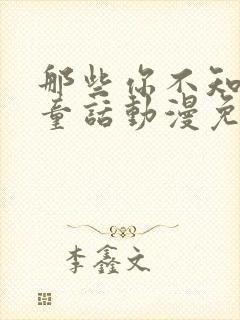 那些你不知
童話動漫免
李鑫文